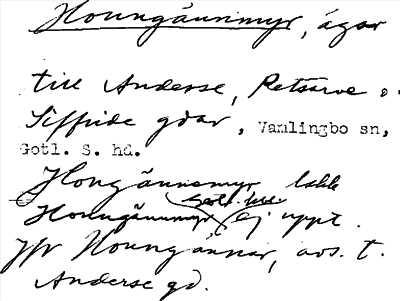 Houngännmyr, ägor
till Anderse, Petsarve o.
Siffride gdar, Vamlingbo sn,
Gotl. S. hd.
Hongännemyr
Hounngännmyr ej uppt.
Jfr Houngannar, avs. t.
Anderse gd.